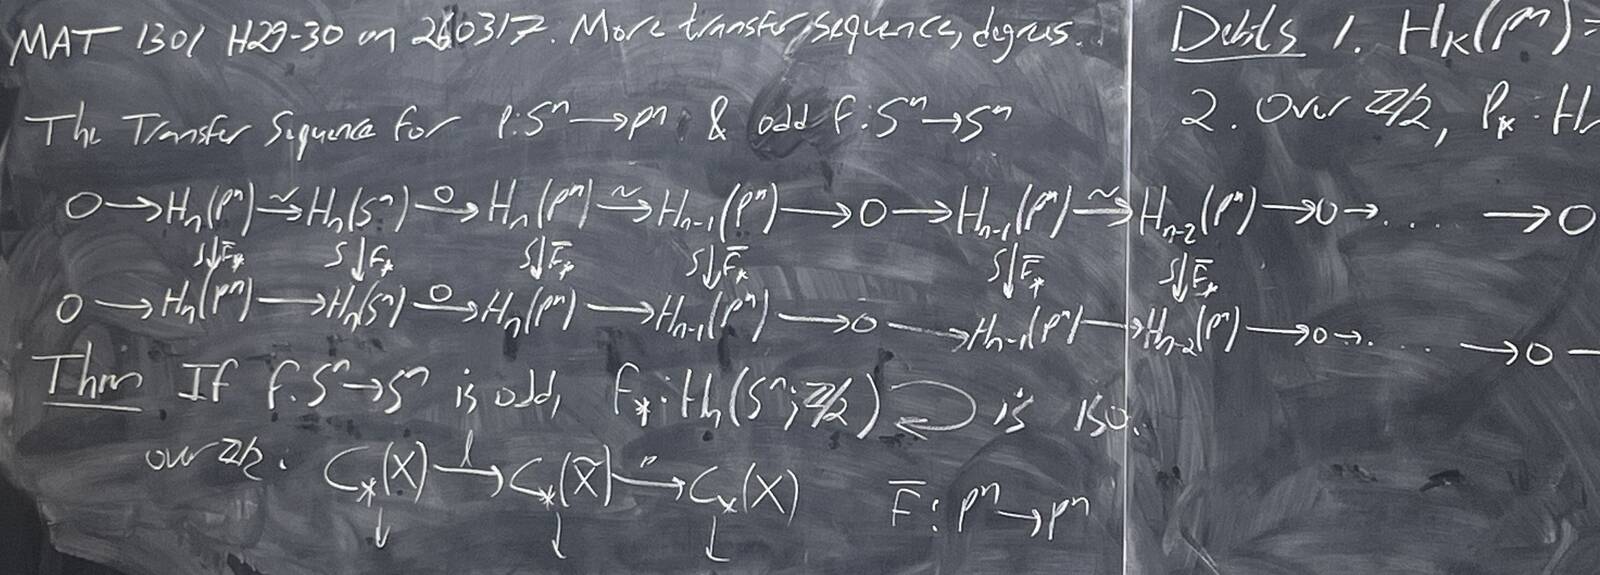 MAT 1301 H29-30 on 260317. More transfer sequence, degrees.
The Transfer Sequence for p: Sⁿ → Pⁿ & odd f: Sⁿ → Sⁿ
0 → Hₙ(Pⁿ) ≃→ Hₙ(Sⁿ) 0→ Hₙ(Pⁿ) ~→ Hₙ₋₁(Pⁿ) → 0 → Hₙ₋₁(Pⁿ) ~→ Hₙ₋₂(Pⁿ) → 0 → ... → 0
S↓F̄* S↓F* S↓F̄* S↓F̄* S↓F̄* S↓F̄*
0 → Hₙ(Pⁿ) → Hₙ(Sⁿ) 0→ Hₙ(Pⁿ) → Hₙ₋₁(Pⁿ) → 0 → Hₙ₋₁(Pⁿ) → Hₙ₋₂(Pⁿ) → 0 → ... → 0 →
Thm If f: Sⁿ → Sⁿ is odd, F*: Hₙ(Sⁿ; ℤ/2) ↩ is iso.
over ℤ/2. C*(X) l→ C*(X̃) p→ C*(X) F̄: Pⁿ → Pⁿ
↓ ↓ ↓
Debts 1. Hₖ(Pⁿ) =
2. Over ℤ/2, P*: H